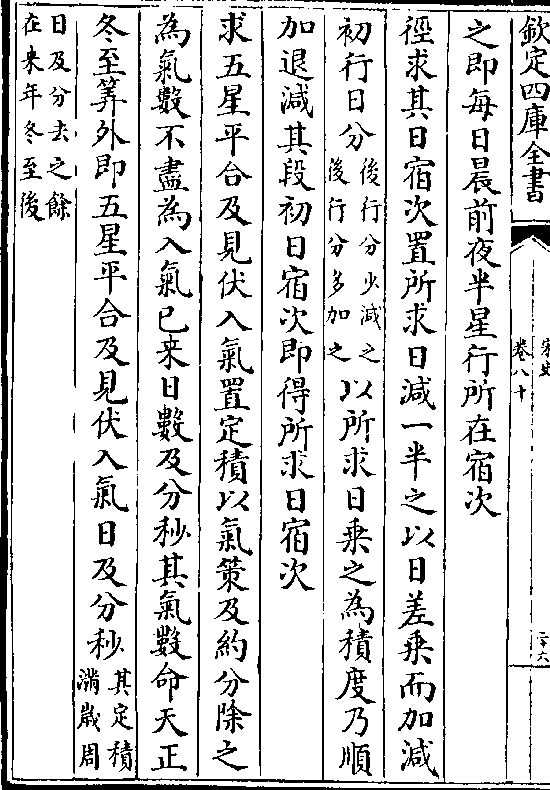 欽定四庫全書
宋史
卷八十
二十六
之即每日晨前夜半星行所在宿次
徑求其日宿次置所求日減一半之以日差乗而加減
初行日分後行分少減之後行分多加之以所求日乗之為積度乃順
加退減其段初日宿次即得所求日宿次
求五星平合及見伏入氣置定積以氣策及約分除之
為氣數不盡為入氣已来日數及分秒其氣數命天正
冬至筭外即五星平合及見伏入氣日及分秒其定積滿嵗周
日及分去之餘在来年冬至後